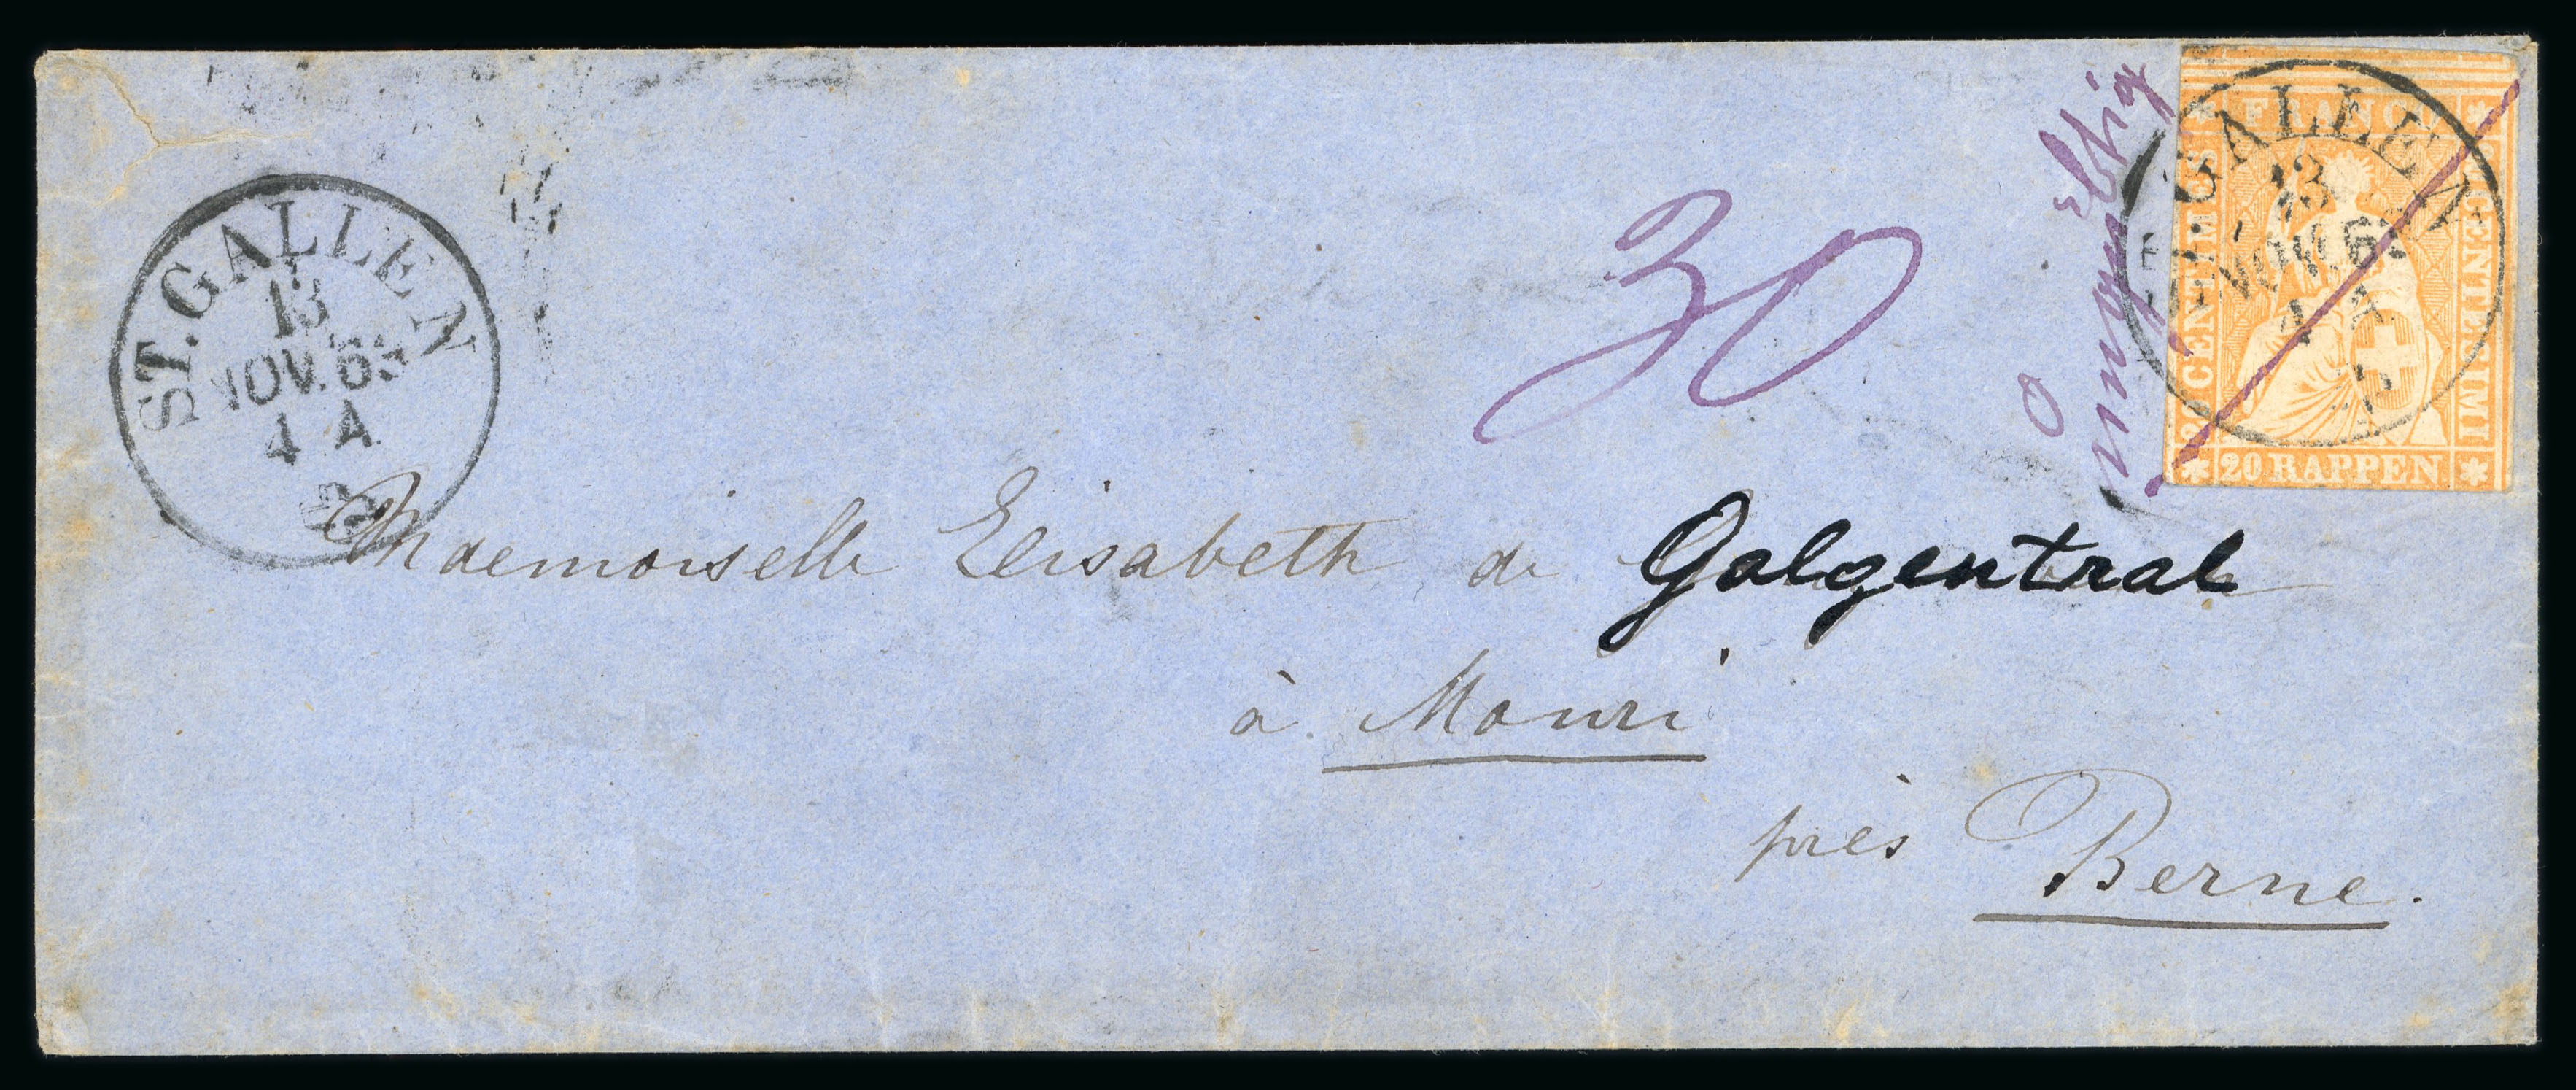 ST. GALLEN
13
NOV. 63
4 A
30
0
ungültig
FRANCO
20 CENTIMES
CENTESIMI
20 RAPPEN
GALLEN
13
NOV. 6
4
Mademoiselle Elisabeth de Golgentral
à Mouri
près Berne.